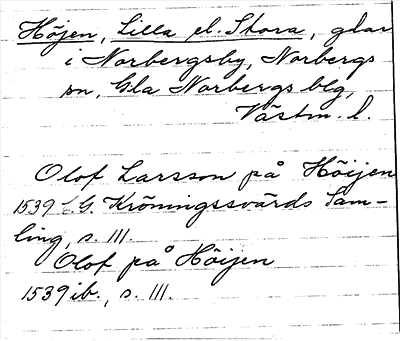 Höjen, Lilla el. Stora, glar
i Norbergsby, Norbergs
sn, Gla Norbergs blg,
Västm. l.
Olof Larsson på Höijen
1539 C.G. Kröningssvärds Sam-
ling, s. 111.
Olof på Höijen
1539 ib., s. 111.